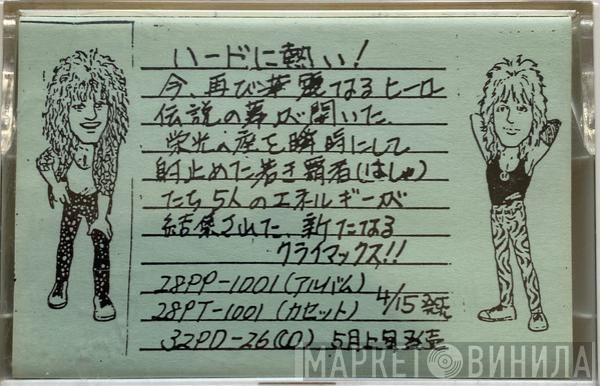 ハードに熱い!
今、再び華麗なるヒーロー
伝説の幕が開いた。
栄光の座を瞬時にして
射止めた若き覇者(はしゃ)
たち5人のエネルギーが
結集された、新たなる
クライマックス!!
28PP-1001(アルバム)
28PT-1001(カセット) 4/15発売
32PD-26(CD) 5月上旬発売
МАРКЕТ ВИНИЛА